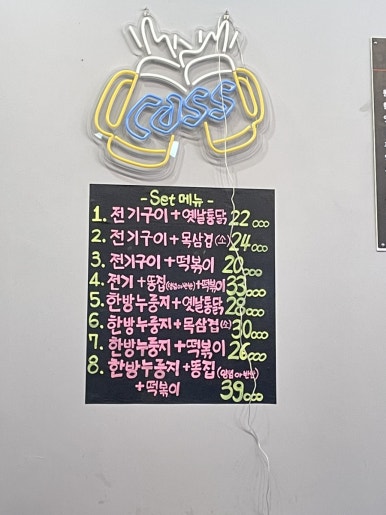 Cass
- Set 메뉴 -
1. 전기구이 + 옛날통닭 22,000
2. 전기구이 + 목삼겹(소) 24,000
3. 전기구이 + 떡볶이 20,000
4. 전기 + 똥집(양념or반반) + 떡볶이 33,000
5. 한방누룽지 + 옛날통닭 28,000
6. 한방누룽지 + 목삼겹(소) 30,000
7. 한방누룽지 + 떡볶이 26,000
8. 한방누룽지 + 똥집(양념or반반)
+ 떡볶이 39,000